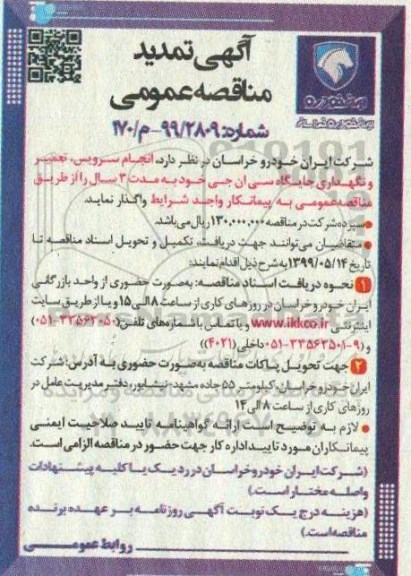 آگهی تمدید
مناقصه عمومی
شماره: ۹۹/۲۸۰۹-م/۱۷۰
ایران خودرو
ایران خودرو خراسان
شرکت ایران خودرو خراسان در نظر دارد، انجام سرویس، تعمیر
و نگهداری جایگاه سی ان جی خود به مدت ۳ سال را از طریق
مناقصه عمومی به پیمانکار واجد شرایط واگذار نماید.
• سپرده شرکت در مناقصه ۱۳۰,۰۰۰,۰۰۰ ریال می باشد.
• متقاضیان می توانند جهت دریافت، تکمیل و تحویل اسناد مناقصه تا
تاریخ ۱۳۹۹/۰۵/۱۴ به شرح ذیل اقدام نمایند:
۱ نحوه دریافت اسناد مناقصه: به صورت حضوری از واحد بازرگانی
ایران خودرو خراسان در روزهای کاری از ساعت ۸ الی ۱۵ و یا از طریق سایت
اینترنتی www.ikkco.ir و یا تماس با شماره های تلفن: (۳۳۵۶۳۰۵۰-۰۵۱)
و (۹-۳۳۵۶۳۵۰۱-۰۵۱ داخلی (۴۰۲۱))
۲ جهت تحویل پاکات مناقصه به صورت حضوری به آدرس: شرکت
ایران خودرو خراسان، کیلومتر ۵۵ جاده مشهد-نیشابور، دفتر مدیریت عامل در
روزهای کاری از ساعت ۸ الی ۱۴
• لازم به توضیح است ارائه گواهینامه تایید صلاحیت ایمنی
پیمانکاران مورد تایید اداره کار جهت حضور در مناقصه الزامی است.
(شرکت ایران خودرو خراسان در رد یک یا کلیه پیشنهادات
واصله مختار است.)
(هزینه درج یک نوبت آگهی روزنامه بر عهده برنده
مناقصه است.)
روابط عمومی